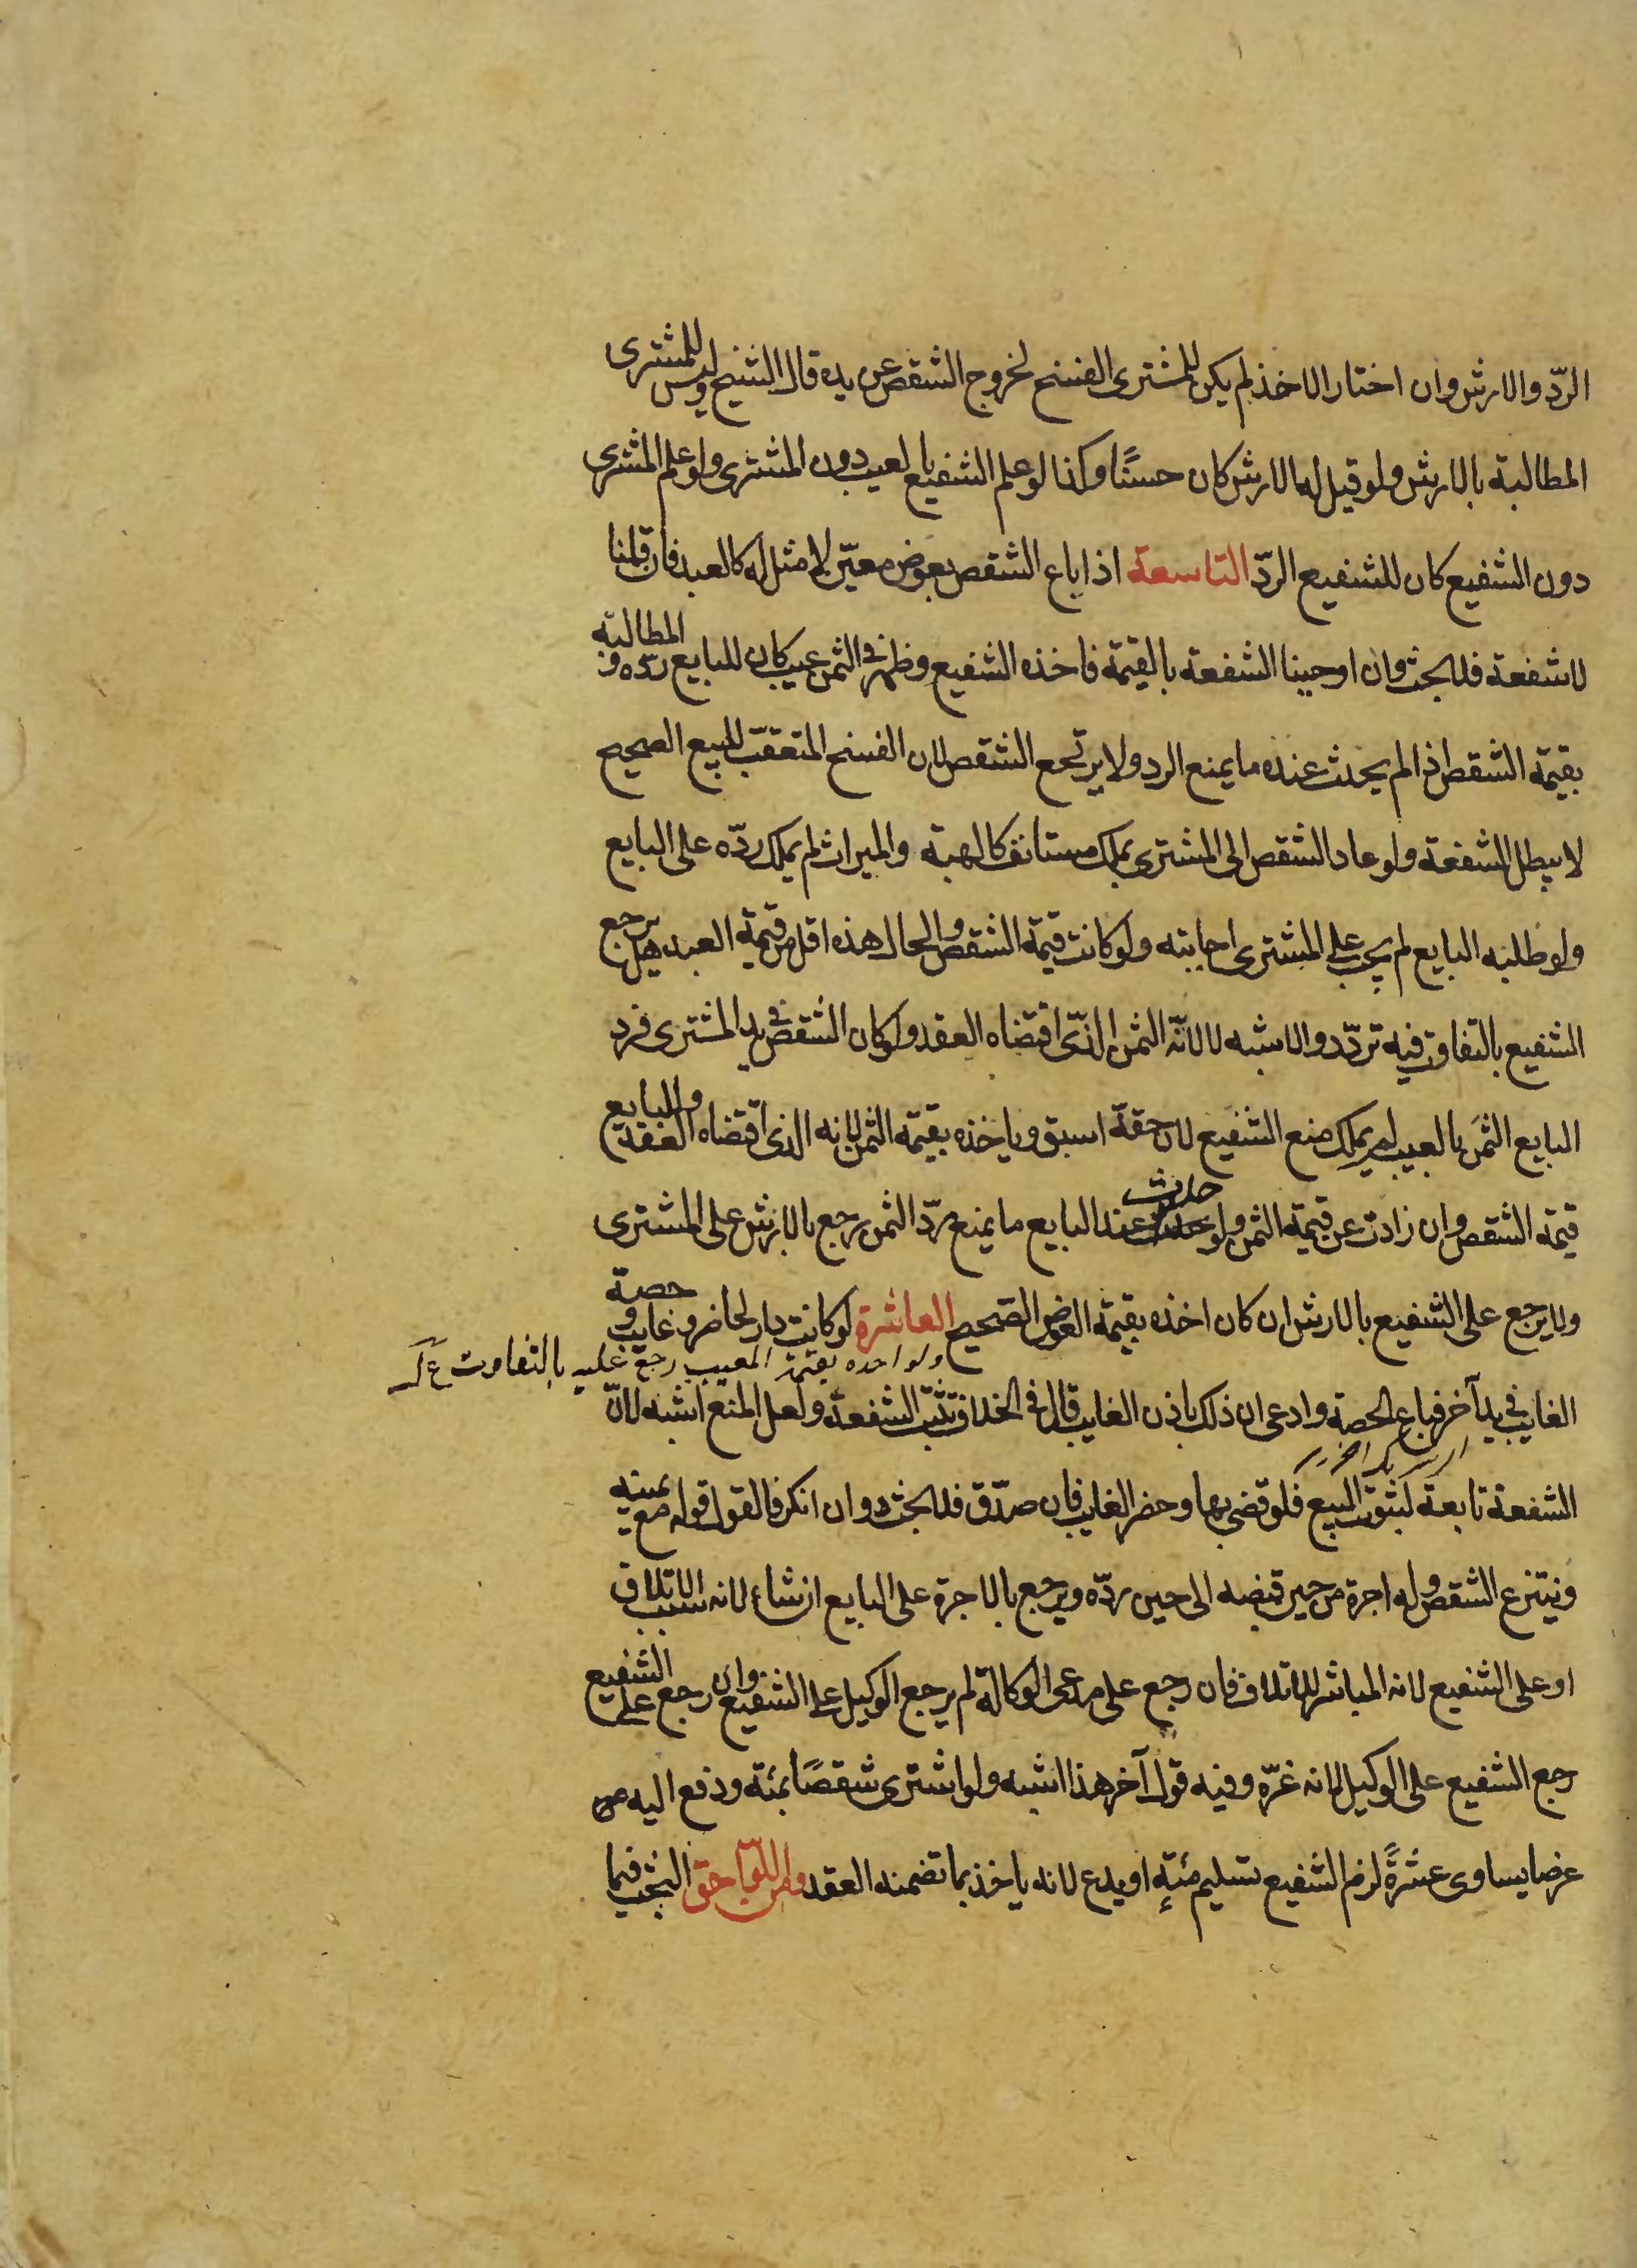 الردّ والارش وان اختار الاخذ لم يكن للمشترى الفسخ لخروج الشقص عن يده قال الشيخ وليس للمشترى
المطالبة بالارش ولو قيل له الارش كان حسنًا وكذا لو علم الشفيع بالعيب دون المشترى ولو علم المشترى
دون الشفيع كان للشفيع الردّ التاسعة اذا باع الشقص بعوض معيّن لا مثل له كالعبد فان قلنا
لا شفعة فلا بحث وان اوجبنا الشفعة بالقيمة فاخذه الشفيع وظهر فى الثمن عيب كان للبايع ردّه و المطالبة
بقيمة الشقص اذا لم يحدث عنده ما يمنع الرد ولا يرتجع الشقص لان الفسخ المتعقّب للبيع الصحيح
لا يبطل الشفعة ولو عاد الشقص الى المشترى بملك مستانف كالهبة والميراث لم يملك ردّه على البايع
ولو طلبه البايع لم يجب على المشترى اجابته ولو كانت قيمة الشقص والحال هذه اقل من قيمة العبد هل يرجع
الشفيع بالتفاوت فيه تردّد والاشبه لا لانّه الثمن الذّى اقتضاه العقد ولو كان الشقص فى يد المشترى فرد
البايع الثمن بالعيب لم يملك منع الشفيع لان حقّه اسبق وياخذه بقيمة الثمن لانه الذى اقتضاه العقد والبايع
قيمة الشقص وان زادت عن قيمة الثمن ولو حدث عند البايع ما يمنع ردّ الثمن رجع بالارش على المشترى
ولا يرجع على الشفيع بالارش ان كان اخذه بقيمة العوض الصّحيح العاشرة لو كانت دار لحاضر و غايب و حصة
ولو اخذه بقيمة المعيب رجع عليه بالتفاوت
الغايب فى يد آخر فباع الحصة وادعى ان ذلك باذن الغايب قال فى الخلاف تثبت الشفعة ولعل المنع اشبه لانّ
الشفعة تابعة لثبوت البيع فلو قضى بها وحضر الغايب فان صدّق فلا بحث وان انكر فالقول قوله مع يمينه
وينتزع الشقص وله اجرة من حين قبضه الى حين ردّه ويرجع بالاجرة على البايع ان شاء لانه سبب الاتلاف
او على الشفيع لانه المباشر للاتلاف فان رجع على مدعى الوكالة لم يرجع الوكيل على الشفيع وان رجع على الشفيع
رجع الشفيع على الوكيل لانه غرّه وفيه قول آخر هذا اشبه ولو اشترى شقصًا بمئة ودفع اليه
عرضا يساوى عشرةً لزم الشفيع تسليم مئةٍ او يدع لانه ياخذ بما تضمنه العقد ومن اللّواحق البحث فيما